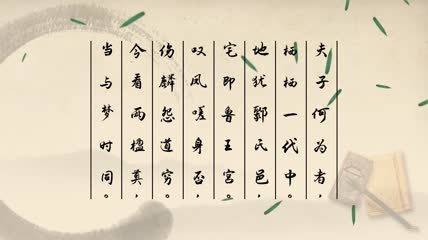 夫子何为者，
栖栖一代中。
地犹鄹氏邑，
宅即鲁王宫。
叹凤嗟身否，
伤麟怨道穷。
今看两楹奠，
当与梦时同。